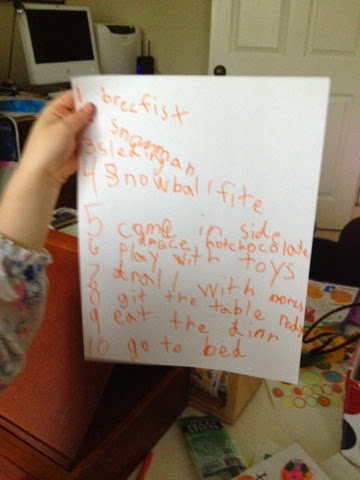 1 brecfist
snowman
3 sleding
4 Snowball fite
5 come in side
6 mace hotchocolate
play with toys
7 with
8 git the table redy
9 eat the dinn
10 go to bed